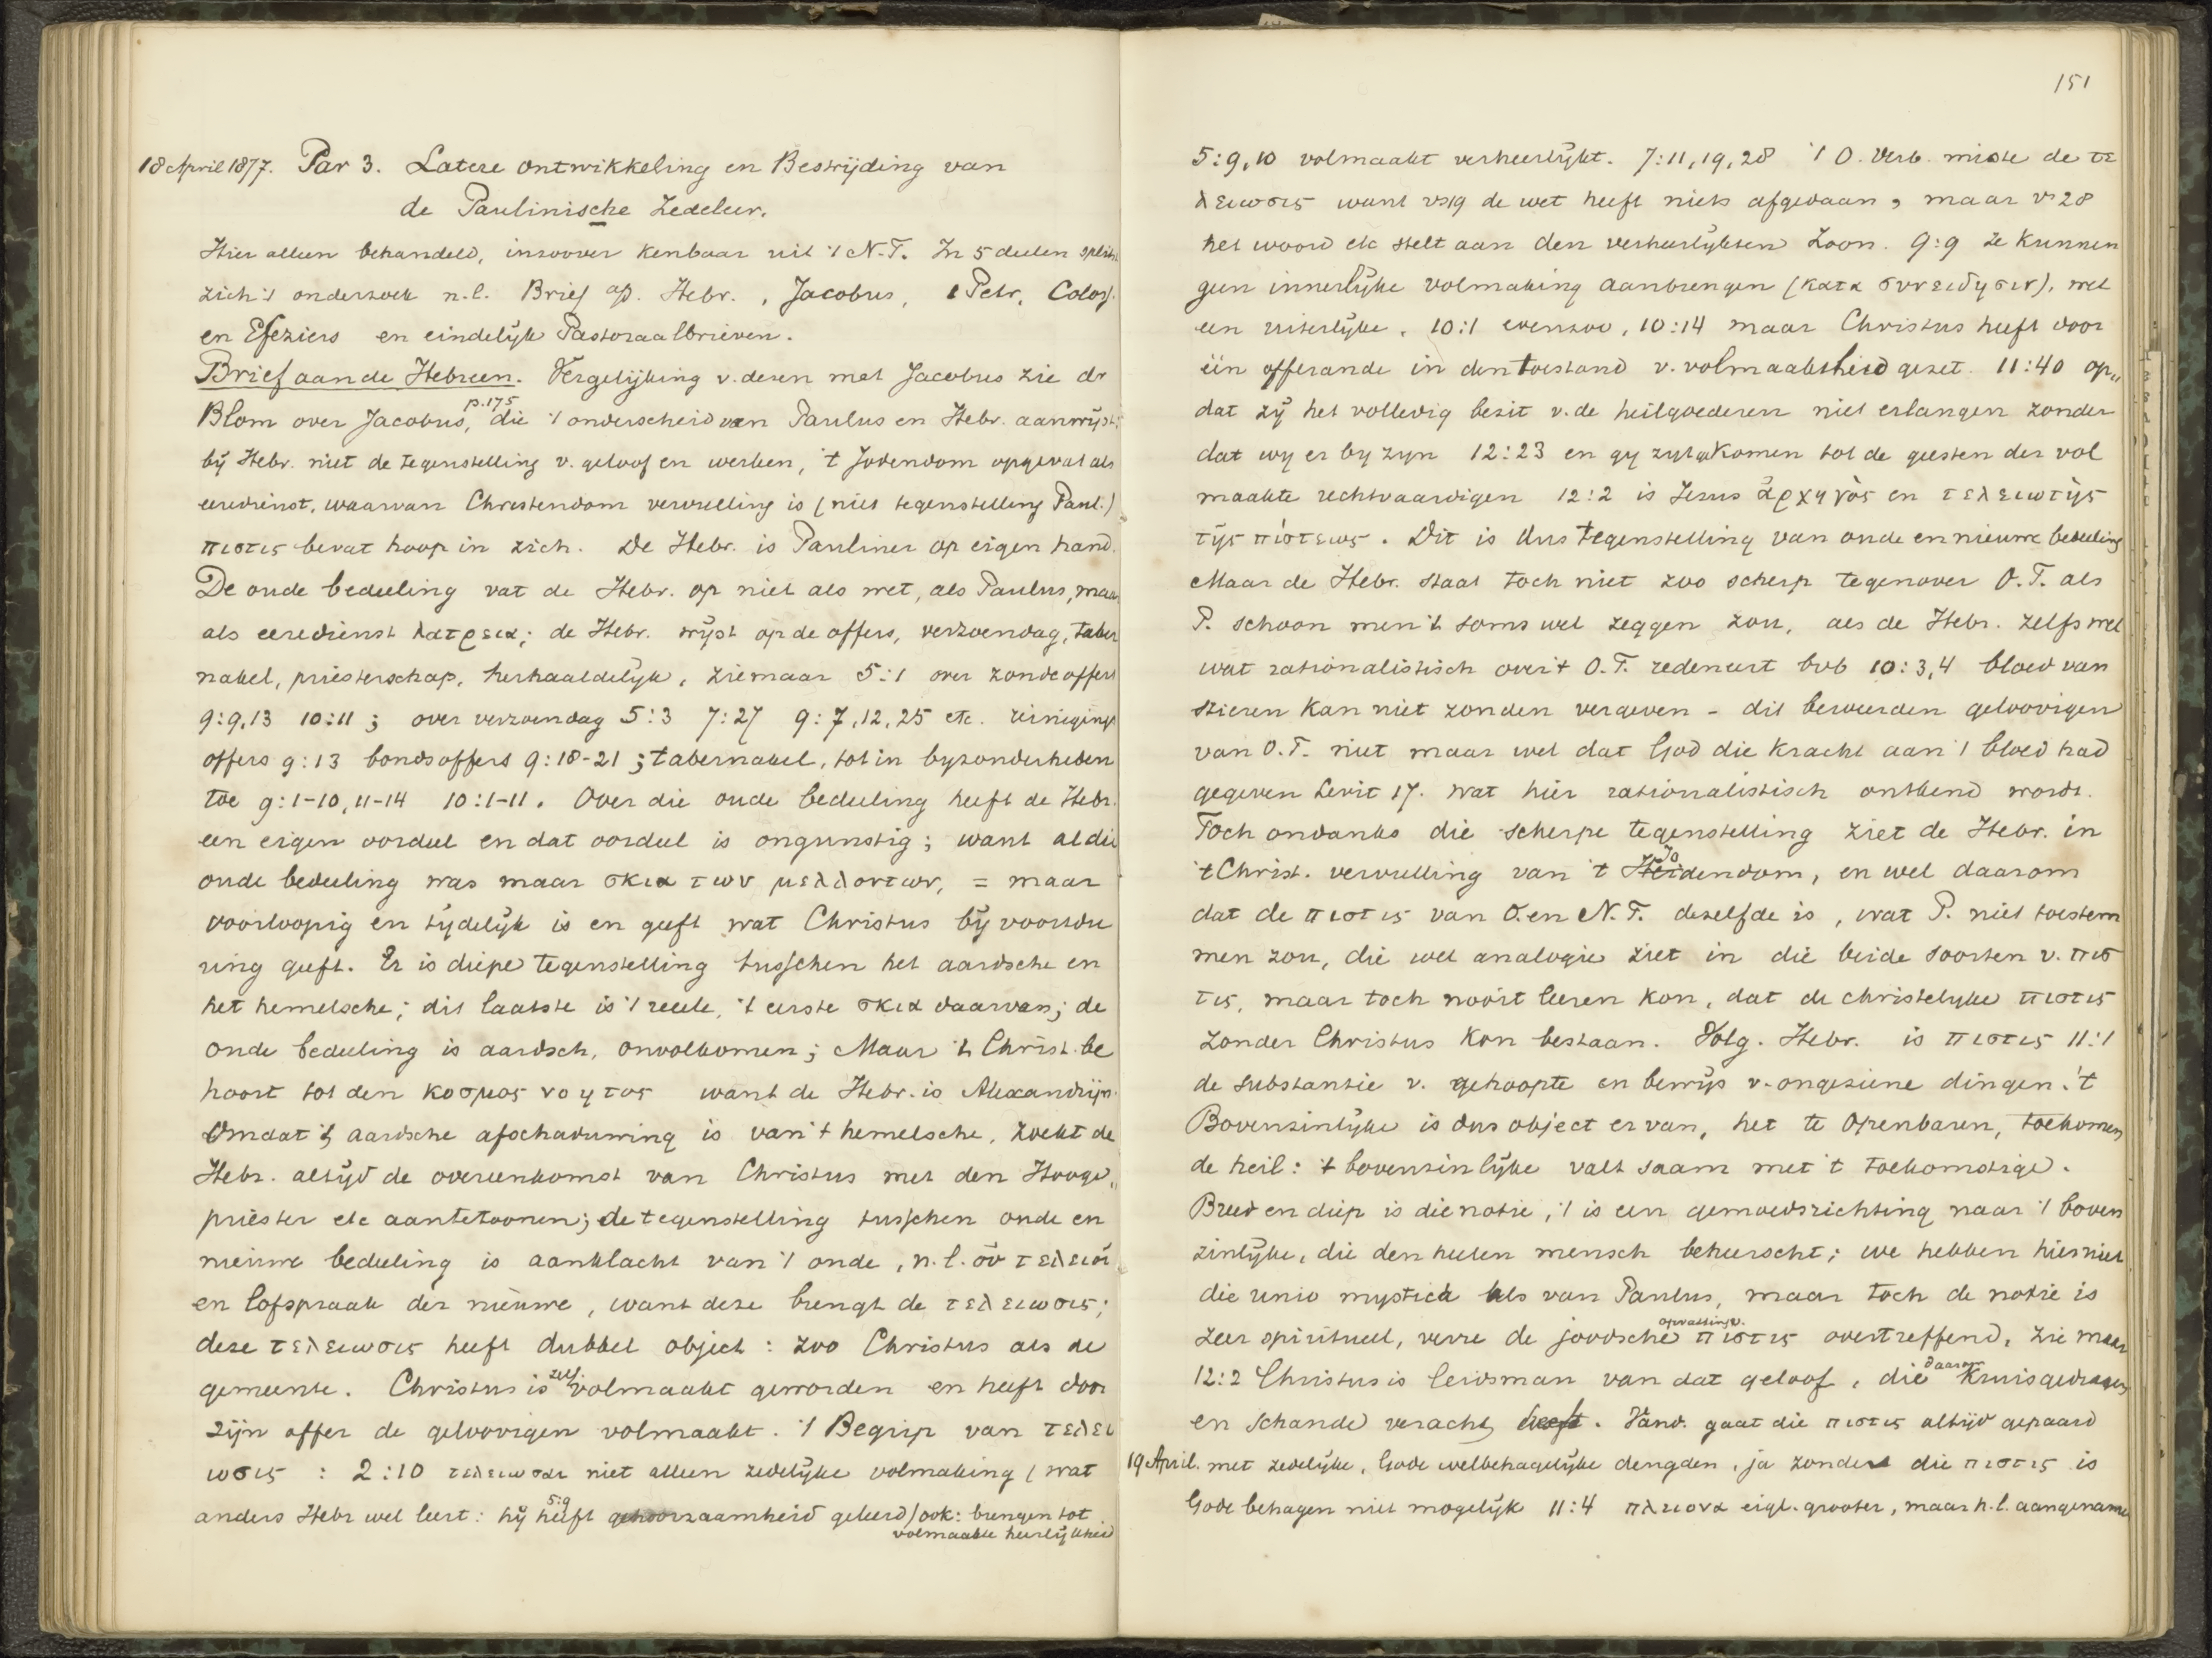 18 April 1877. Par 3. Latere ontwikkeling en Bestrijding van
de Paulinische Zedeleer.
Hier alleen behandeld, inzoover kenbaar uit 't N.T. In 5 deelen splitst
zich 't onderzoek n.l. Brief ap. Hebr., Jacobus, 1 Petr, Coloss.
en Efeziers en eindelijk Pastoraalbrieven.
Brief aan de Hebreen. Vergelijking v. dezen met Jacobus zie dr
Blom over Jacobus, p. 175 die 't onderscheid van Paulus en Hebr. aanwijst;
bij Hebr. niet de tegenstelling v. geloof en werken, 't Jodendom opgevat als
eeredienst, waarvan Christendom vervulling is (niet tegenstelling Paul.)
πιστις bevat hoop in zich. De Hebr. is Pauliner op eigen hand.
De oude bedeeling vat de Hebr. op niet als wet, als Paulus, maar
als eeredienst λατρεια; de Hebr. wijst op de offers, verzoendag, taber
nakel, priesterschap, herhaaldelijk, zie maar 5:1 over zondeoffers
9:9,13 10:11; over verzoendag 5:3 7:27 9:7,12,25 etc. reinigings
offers 9:13 bondsoffers 9:18-21; tabernakel, tot in byzonderheden
toe 9:1-10, 11-14 10:1-11. Over die oude bedeeling heeft de Hebr.
een eigen oordeel en dat oordeel is ongunstig; want al die
oude bedeeling was maar σκια των μελλοντων, = maar
voorloopig en tijdelijk is en geeft wat Christus bij voortdu
ring geeft. Er is diepe tegenstelling tusschen het aardsche en
het hemelsche; dit laatste is 't reeele, 't eerste σκια daarvan; de
oude bedeeling is aardsch, onvolkomen; Maar 't Christ. be
hoort tot den κοσμος νοητος want de Hebr. is Alexandrijn.
Omdat 't aardsche afschaduwing is van 't hemelsche, zoekt de
Hebr. altijd de overeenkomst van Christus met den Hooge„
priester etc aantetoonen; de tegenstelling tusschen oude en
nieuwe bedeeling is aanklacht van 't oude, n.l. οὐ τελειοῖ
en lofspraak der nieuwe, want deze brengt de τελειωσις;
deze τελειωσις heeft dubbel object: zoo Christus als de
gemeente. Christus is zelf volmaakt geworden en heeft door
zijn offer de geloovigen volmaakt. 't Begrip van τελει
ωσις : 2:10 τελειωσαι niet alleen zedelijke volmaking (wat
anders Hebr wel leert: hij heeft 5:9 gehoorzaamheid geleerd) ook: brengen tot
volmaakte heerlijkheid
151
5:9,10 volmaakt verheerlijkt. 7:11,19,28 't O. Verb. miste de τε
λειωσις want vs19 de wet heeft niets afgedaan, maar vs 28
het woord etc stelt aan den verheerlijkten Zoon. 9:9 ze kunnen
geen innerlijke volmaking aanbrengen (κατα συνειδησιν), wel
een uiterlijke, 10:1 evenzoo, 10:14 maar Christus heeft door
één offerande in den toestand v. volmaaktheid gezet. 11:40 op„
dat zij het volledig bezit v. de heilgoederen niet erlangen zonder
dat wy er by zyn 12:23 en gy zyt gekomen tot de geesten der vol
maakte rechtvaardigen 12:2 is Jezus ἀρχηγὸς en τελειωτὴς
τῆς πίστεως. Dit is dus tegenstelling van oude en nieuwe bedeeling
Maar de Hebr. staat toch niet zoo scherp tegenover O.T. als
P. schoon men 't soms wel zeggen zou, als de Hebr. zelfs wel
wat rationalistisch over 't O.T. redeneert bvb 10:3,4 bloed van
stieren kan niet zonden vergeven - dit beweerden geloovigen
van O.T. niet maar wel dat God die kracht aan 't bloed had
gegeven Levit 17. wat hier rationalistisch ontkend wordt.
Toch ondanks die scherpe tegenstelling ziet de Hebr. in
't Christ. vervulling van 't Heidendom, Jo en wel daarom
dat de πιστις van O. en N.T. dezelfde is, wat P. niet toestem
men zou, die wel analogie ziet in die beide soorten v. πισ
τις, maar toch nooit leeren kon, dat de christelyke πιστις
zonder Christus kon bestaan. Volg. Hebr. is πιστις 11:1
de substantie v. gehoopte en bewijs v. ongeziene dingen. 't
Bovenzinlijke is dus object ervan, het te openbaren, toekomen
de heil: 't bovenzinlijke valt saam met 't toekomstige.
Breed en diep is die notie, 't is een gemoedsrichting naar 't boven
zinlijke, die den heelen mensch beheerscht; we hebben hier niet
die unio mystica als van Paulus, maar toch de notie is
zeer spiritueel, verre de joodsche opvatting v. πιστις overtreffend, zie maar
12:2 Christus is leidsman van dat geloof, die daarom kruis gedragen
en schande veracht heeft. Vand. gaat die πιστις altijd gepaard
19 April. met zedelijke, Gode welbehagelijke deugden, ja zonder die πιστις is
Gode behagen niet mogelijk 11:4 πλειονα eigl. grooter, maar h.l. aangenamer